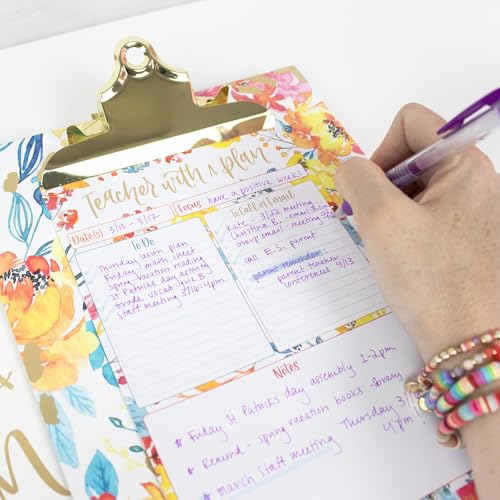 Teacher with a plan
Date(s) 3/13 - 3/17
Focus: have a positive week!
To Do
Thursday lesson plan
Friday math sheet
Spring vacation reading
St Patricks day activity
Grade vocab quiz B
Staff meeting 3/16-4pm
To Call or Email
Kate - 3/22 meeting
Christina B. - email
Group email - meeting
call E.S. parent
parent reminder:
parent teacher
conferences 4/13
Notes
★ Friday St Patricks day assembly 1-2pm
★ Remind - spring vacation books - library
★ March staff meeting Thursday 3/
4pm!